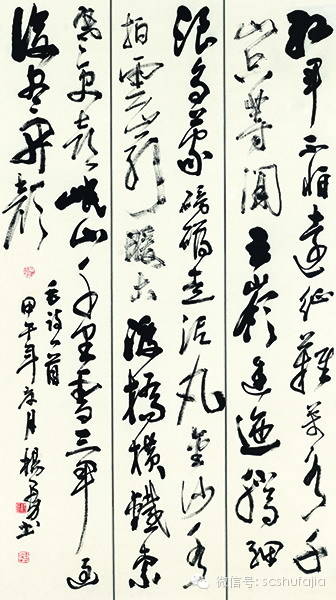 紅軍不怕遠征難萬水千
山只等閒五嶺逶迤騰細
浪烏蒙磅礴走泥丸金沙水
拍雲崖暖大渡橋橫鐵索
寒更喜岷山千里雪三軍過
後尽开顏
毛詩一首
甲午年月楊书
微信号: scshufajia